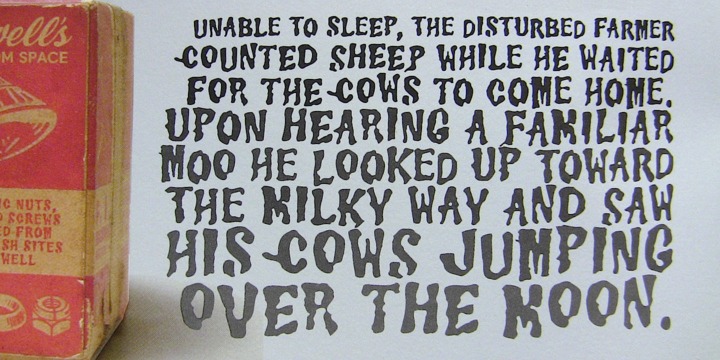 OM SPACE
UNABLE TO SLEEP, THE DISTURBED FARMER
COUNTED SHEEP WHILE HE WAITED
FOR THE COWS TO COME HOME.
UPON HEARING A FAMILIAR
MOO HE LOOKED UP TOWARD
THE MILKY WAY AND SAW
HIS COWS JUMPING
OVER THE MOON.
NUTS,
SCREWS
FROM
SITES
WELL